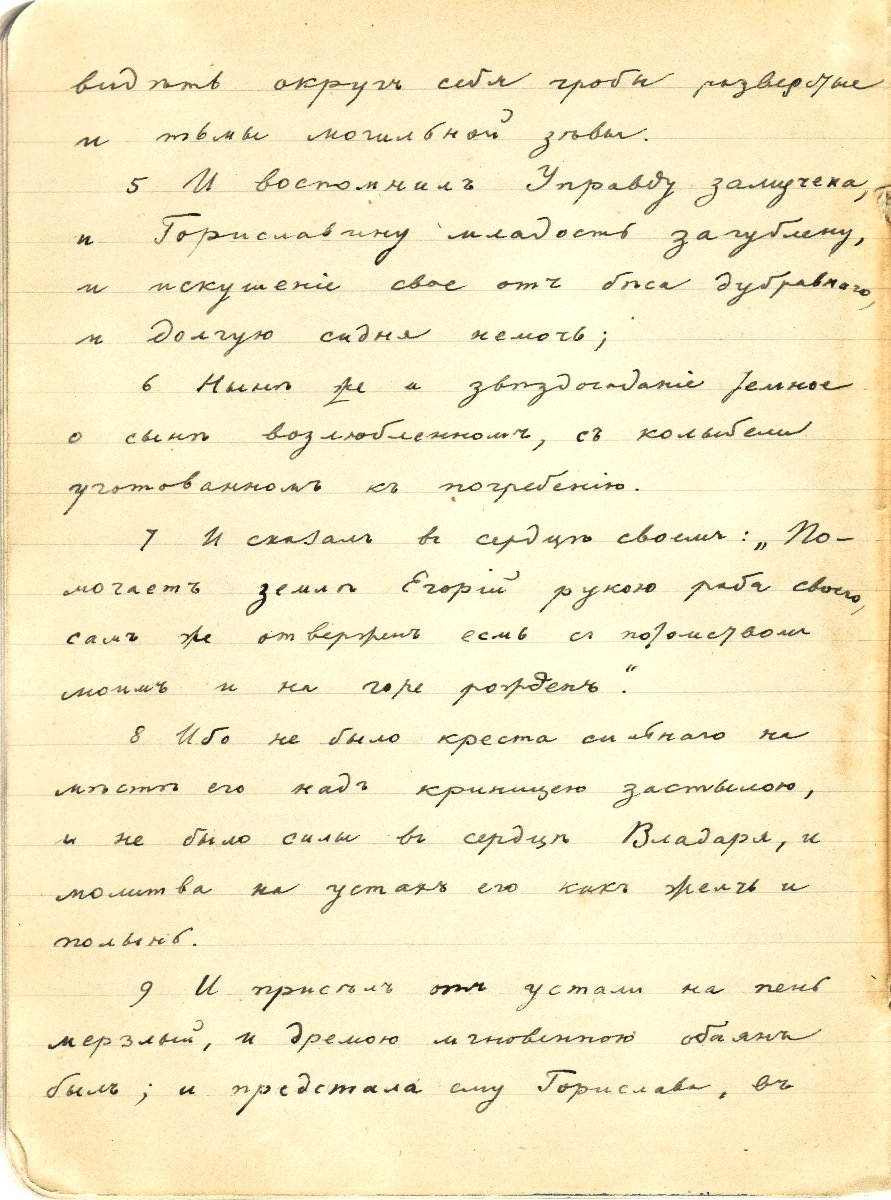 видѣть округъ себя гробы разверстые
и тьмы могильной зѣвы.
5 И воспомнилъ Управду замучена,
и Гориславину младость загублену,
и искушеніе свое отъ бѣса дубравнаго,
и долгую сидня немочь;
6 Нынѣ же и звѣздогаданіе темное
о сынѣ возлюбленномъ, съ колыбели
уготованномъ къ погребенію.
7 И сказалъ въ сердцѣ своемъ: „По-
могаетъ землѣ Егорій рукою раба своего,
самъ же отверженъ есмь съ потомствомъ
моимъ и на горе рожденъ“.
8 Ибо не было креста сильнаго на
мѣстѣ его надъ криницею застылою,
и не было силы въ сердцѣ Владаря, и
молитва на устахъ его какъ желчь и
полынь.
9 И присѣлъ отъ устали на пень
мерзлый, и дремою мгновенною обаянъ
былъ; и предстала ему Горислава, въ